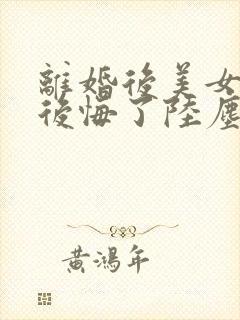 離婚後美女
後悔了陸塵
黃鴻年